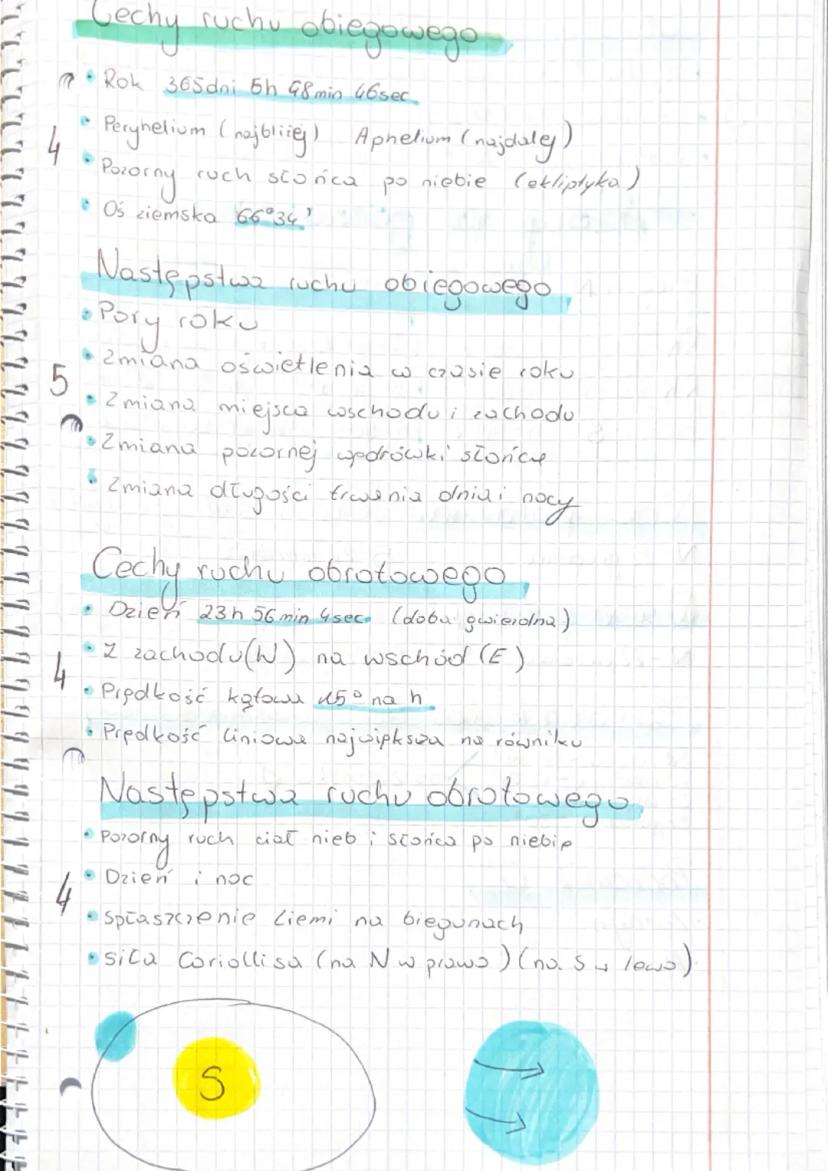 Cechy ruchu obiegowego
• Rok 365dni 5h 48min 46sec
4
• Peryhelium (najbliżej) Aphelium (najdalej)
• Pozorny ruch słońca po niebie (ekliptyka)
• Oś ziemska 66°34'
Następstwa ruchu obiegowego
• Pory roku
5
• Zmiana oświetlenia w czasie roku
• Zmiana miejsca wschodu i zachodu
• Zmiana pozornej wędrówki słońca
• Zmiana długości trwania dnia i nocy
Cechy ruchu obrotowego
• Dzień 23h 56min 4sec (doba gwiezdna)
4
• Z zachodu(W) na wschód (E)
• Prędkość kątowa 15° na h
• Prędkość liniowa największa na równiku
Następstwa ruchu obrotowego
• Pozorny ruch ciał nieb i słońca po niebie
4
• Dzień i noc
• Spłaszczenie Ziemi na biegunach
• siła Coriollisa (na N w prawo) (na S w lewo)
S